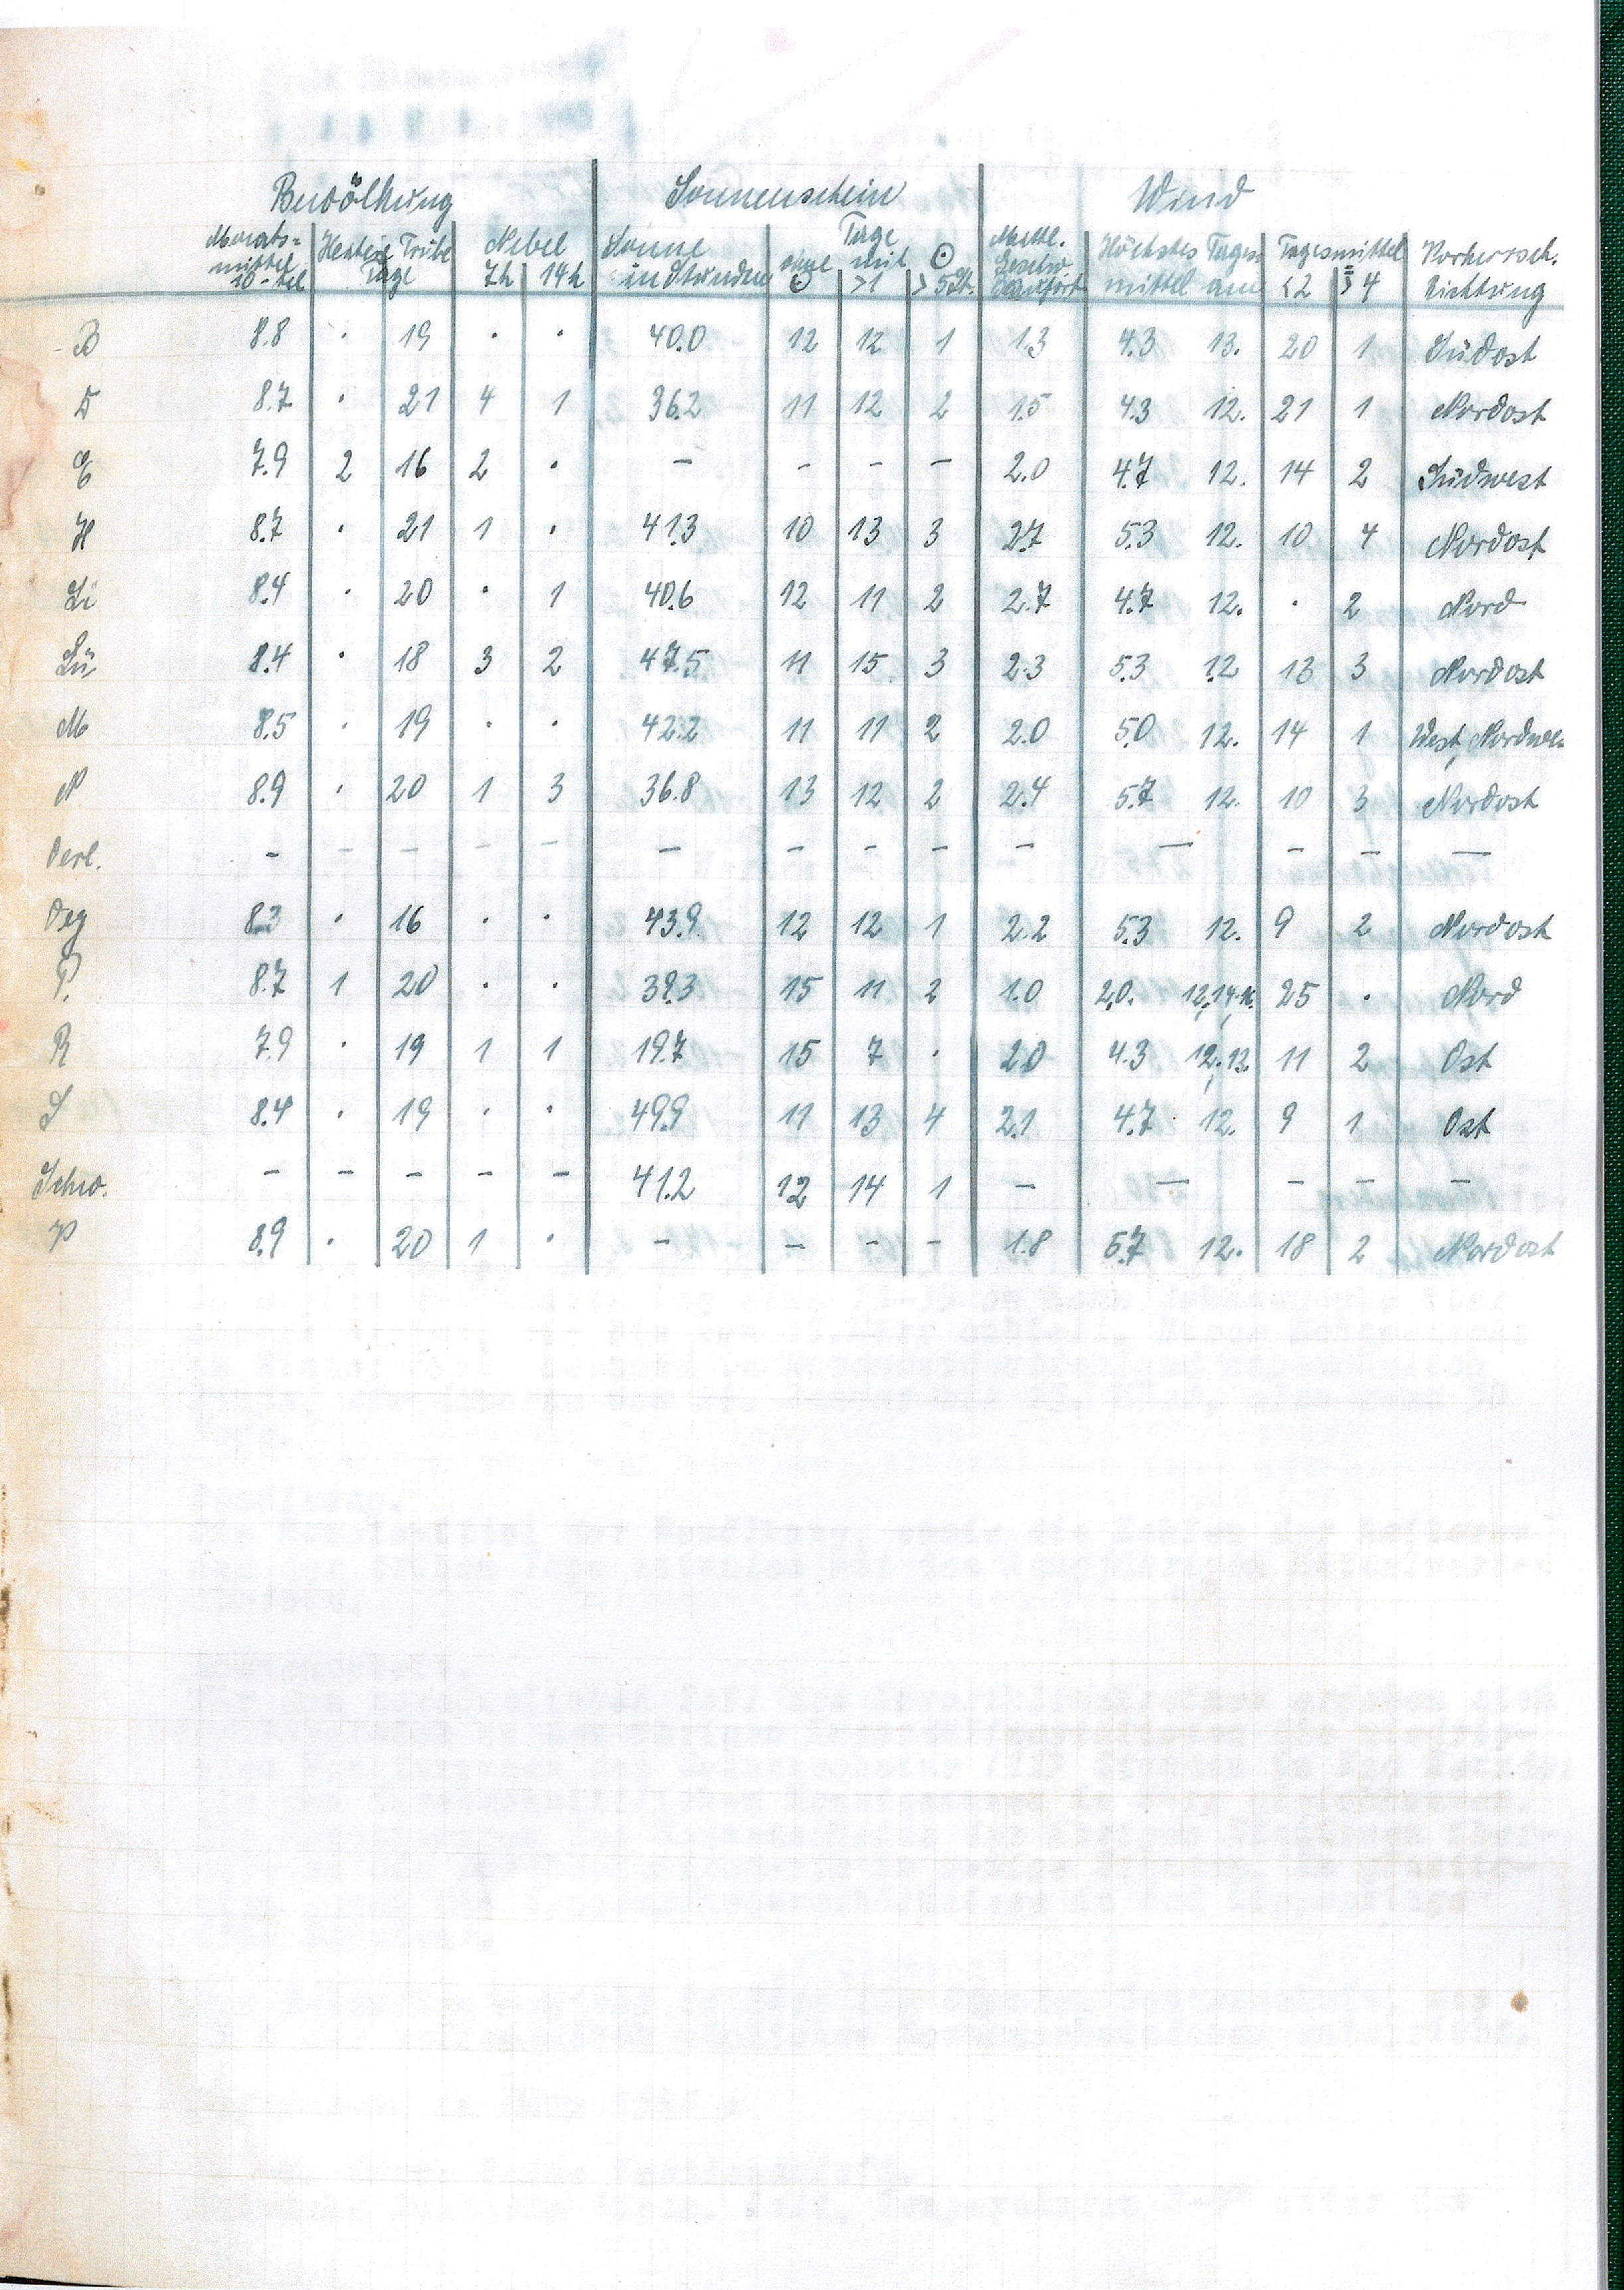 Bewölkung Sonnenschein Wind
Monats- Heitere Trübe Nebel Sonne Tage Mittl. Höchstes Tages- Tagesmittel Vorherrsch.
mittel Tage ohne mit ⊙ Geschw.
10-tel 7h 14h in Stunden ⊙ >1 >5St. Beaufort mittel am <2 ≧4 Richtung
B 8.8 . 19 . . 40.0 12 12 1 1.3 4.3 13. 20 1 Südost
D 8.7 . 21 4 1 36.2 11 12 2 1.5 4.3 12. 21 1 Nordost
E 7.9 2 16 2 . – – – – 2.0 4.7 12. 14 2 Südwest
H 8.7 . 21 1 . 41.3 10 13 3 2.7 5.3 12. 10 4 Nordost
Li 8.4 . 20 . 1 40.6 12 11 2 2.7 4.7 12. . 2 Nord
Lü 8.4 . 18 3 2 47.5 11 15 3 2.3 5.3 12. 13 3 Nordost
M 8.5 . 19 . . 42.2 11 11 2 2.0 5.0 12. 14 1 West, Nordwe
N 8.9 . 20 1 3 36.8 13 12 2 2.4 5.7 12. 10 3 Nordost
Oerl. – – – – – – – – – – – – – –
Oeg 8.3 . 16 . . 43.9 12 12 1 2.2 5.3 12. 9 2 Nordost
P. 8.7 1 20 . . 39.3 15 11 2 1.0 2.0. 12., 14., 16. 25 . Nord
R 7.9 . 19 1 1 19.7 15 7 . 2.0 4.3 12., 13. 11 2 Ost
S 8.4 . 19 . . 49.9 11 13 4 2.1 4.7 12. 9 1 Ost
Schw. – – – – – 41.2 12 14 1 – – – – –
W 8.9 . 20 1 . – – – – 1.8 5.7 12. 18 2 Nordost